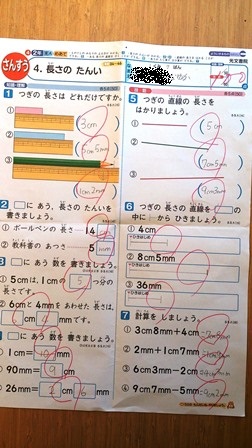 さんすう
2年
4. 長さの たんい
光文書院
1 つぎの 長さは どれだけですか。
① 3cm
② 7cm5mm
③ 1cm2mm
2 □に あう、長さの たんいを
書きましょう。
① ボールペンの 長さ 14
② 教科書の あつさ 5 mm
3 □に あう 数を 書きましょう。
① 5cmは、1cmの 5 つ分の
長さです。
② 6cmと 4mmを あわせた 長さは、
cm mmです。
□に あう 数を 書きましょう。
1cm= mm
90mm= 9 cm
26mm= 2 cm 6 mm
5 つぎの 直線の 長さを
はかりましょう。
① 5cm
② 7cm5mm
③ 9cm3mm
6 つぎの 長さの 直線を
の 中に ・から ひきましょう。
① 4cm
② 8cm5mm
③ 36mm
7 計算を しましょう。
① 3cm8mm+4cm
② 2mm+1cm7mm
③ 6cm3mm−2cm
④ 9cm7mm−5mm